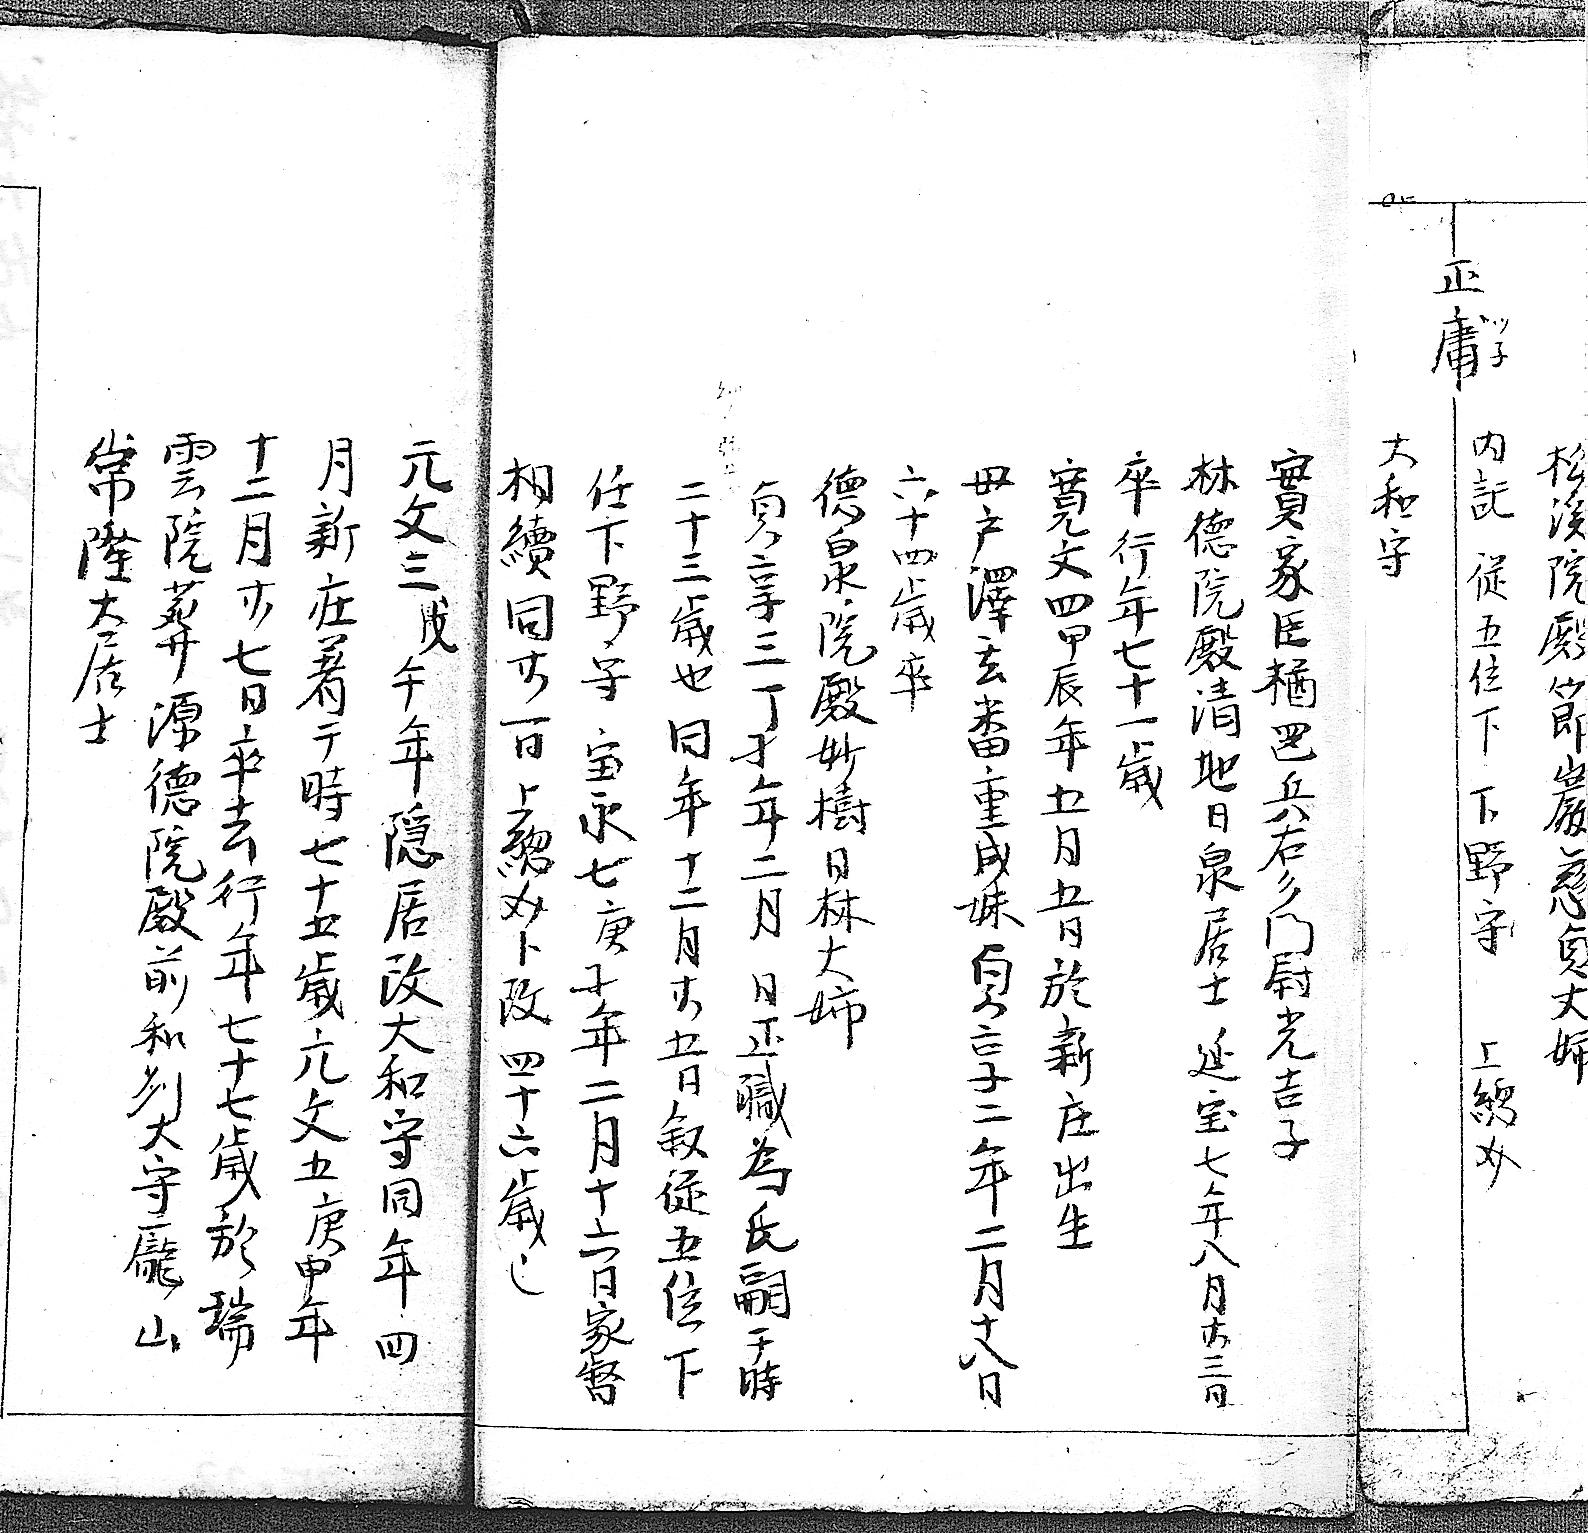 松渓院殿節巌慈貞大姉
正庸
内記 従五位下 下野守 上総介
大和守
實家臣楯邑兵右夛門尉光吉子
林徳院殿清地日泉居士 延宝七年八月廿三日
卒行年七十一歳
寛文四甲辰年五月五日於新庄出生
母戸澤玄番重成妹貞享二年二月十八日
六十四歳卒
徳泉院殿妙樹日林大姉
貞享三丁 年二月 日正職為氏嗣于時
二十三歳也同年十二月廿五日叙従五位下
任下野守宝永七庚 年二月十六日家督
相續同廿一日上総介ト改四十六歳
元文三戊午年隠居改大和守同年四
月新庄着于時七十五歳元文五庚申年
十二月廿七日卒去行年七十七歳於瑞
雲院葬源徳院殿前和刕大守龐山
常隆大居士